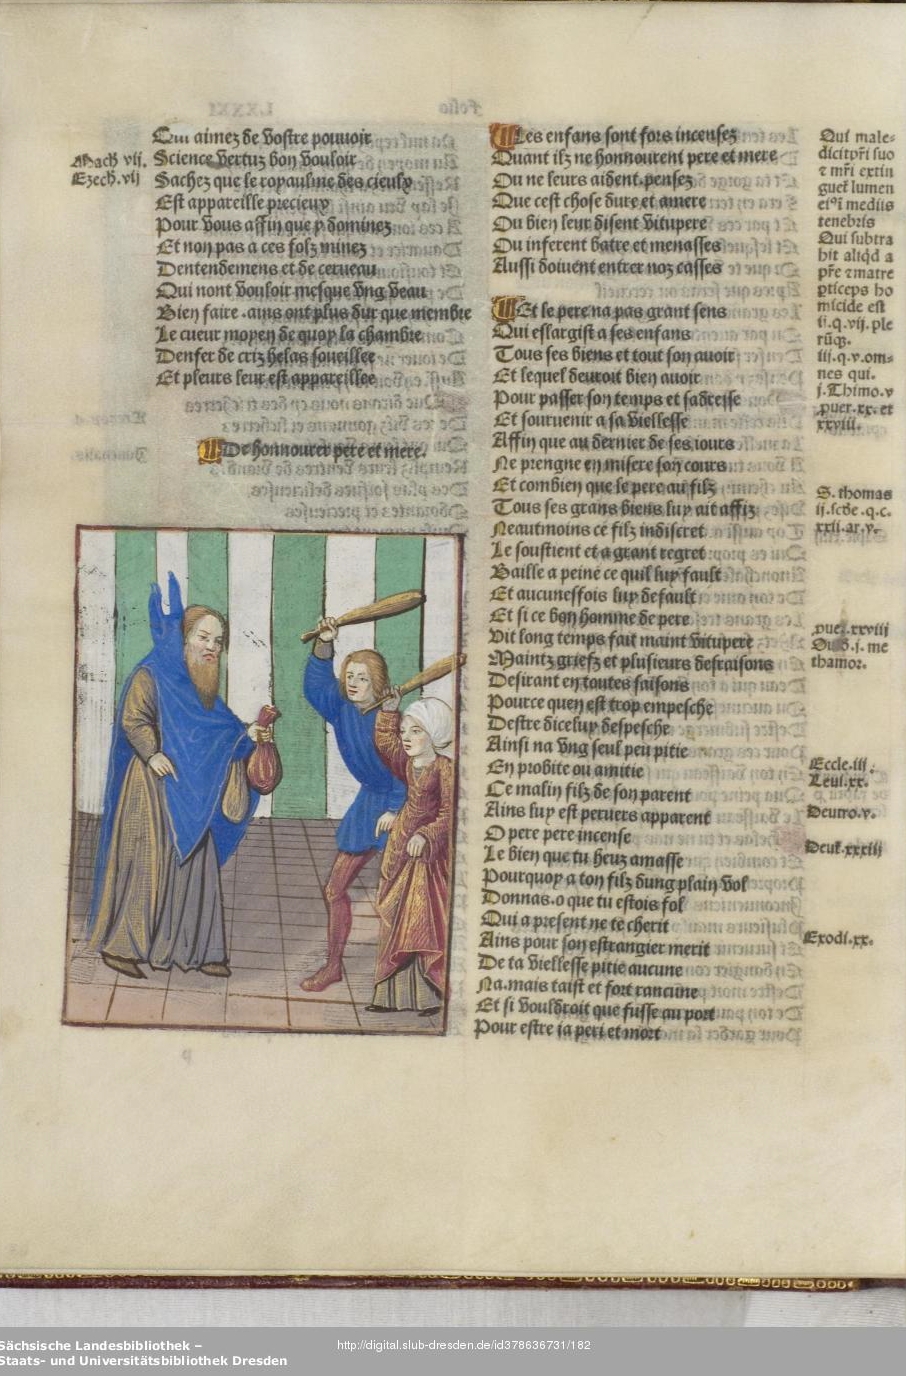 Qui aimez de vostre pouuoir
Mach vij. Science vertuz bon vouloir
Ezech. vij Sachez que le royaulme des cieulx
Est appareille precieux
Pour vous affin que y dominez
Et non pas a ces folz minez
Dentendemens et de cerueau
Qui nont vouloir mesque vng veau
Bien faire .ains ont plus dur que membre
Le cueur moyen de quoy la chambre
Denfer de criz helas soueillee
Et pleurs leur est appareillee
De honnourer pere et mere.
Les enfans sont fors incensez
Quant ilz ne honnourent pere et mere
Ou ne leurs aident.pensez
Que cest chose dure et amere
Ou bien leur disent vitupere
Ou inferent batre et menasses
Aussi doiuent entrer noz casses
Et le pere na pas grant sens
Qui eslargist a ses enfans
Tous ses biens et tout son auoir
Et lequel deuroit bien auoir
Pour passer son temps et sadresse
Et souruenir a sa viellesse
Affin que au dernier de ses iours
Ne prengne en misere son cours
Et combien que le pere au filz
Tous ses grans biens luy ait affiz
Neautmoins ce filz indiscret
Le soustient et a grant regret
Baille a peine ce quil luy fault
Et aucuneffois luy default
Et si ce bon homme de pere
Vit long temps fait maint vitupere
Maintz griefz et plusieurs desraisons
Desirant en toutes saisons
Pource quen est trop empesche
Destre diceluy despesche
Ainsi na vng seul peu pitie
En probite ou amitie
Ce malin filz de son parent
Ains luy est peruers apparent
O pere pere incense
Le bien que tu heuz amasse
Pourquoy a ton filz dung plain vol
Donnas.o que tu estois fol
Qui a present ne te cherit
Ains pour son estrangier merit
De ta viellesse pitie aucune
Na.mais taist et fort rancune
Et si vouldroit que fusse au port
Pour estre ia peri et mort
Qui male=
dicit pr̃i suo
⁊ mr̃i extin
guet̃ lumen
eiꝰ ĩ mediis
tenebris
Qui subtra
hit aliqd a
pr̃e ⁊ matre
ꝑticeps ho
micide est
ij.q.vij. ple
rũqꝫ.
iij.q.v.om=
nes qui.
j.Thimo.v
puer.xx. et
xxviii.
S. thomas
ij.scd̃e .q.c.
xxii.ar.v.
puer.xxviij
j. me
thamor.
Eccle.iii.
Leui.xx.
Deutro.v.
Deut̃.xxxiij
Exodi.xx.
Folio LXXXI
Sächsische Landesbibliothek –
Staats- und Universitätsbibliothek Dresden
http://digital.slub-dresden.de/id378636731/182